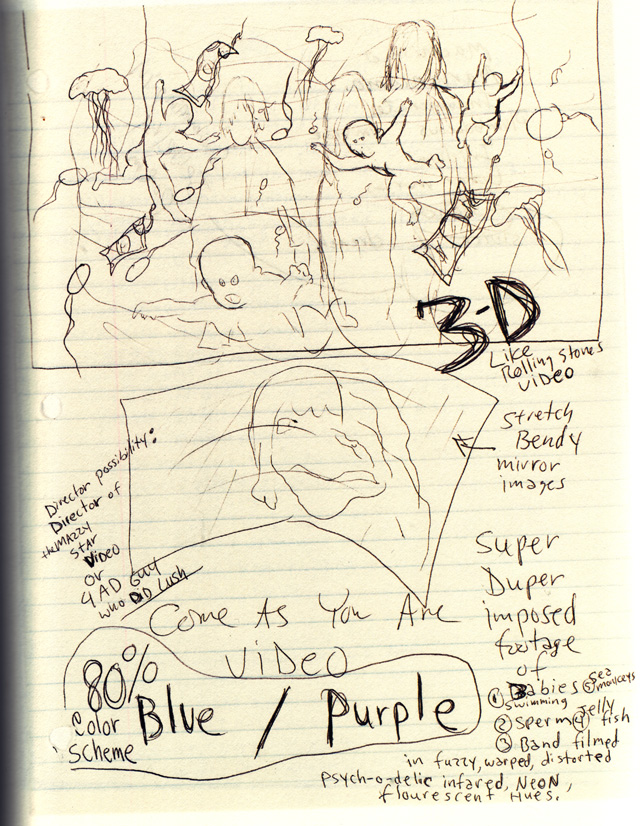 3-D
Like
Rolling Stones
video
Stretch
Bendy
mirror
images
Director possibility:
Director of
the MAZZy
STAR
Video
or
4AD GUY
who DID Lush
Come As You Are
Video
80%
Color
Scheme
Blue / Purple
Super
Duper
imposed
footage
of
① Babies ⑤ sea monkeys
swimming
② Sperm ④ Jelly fish
③ Band filmed
in fuzzy, warped, distorted
psych-o-delic infared, NEON,
flourescent Hues.